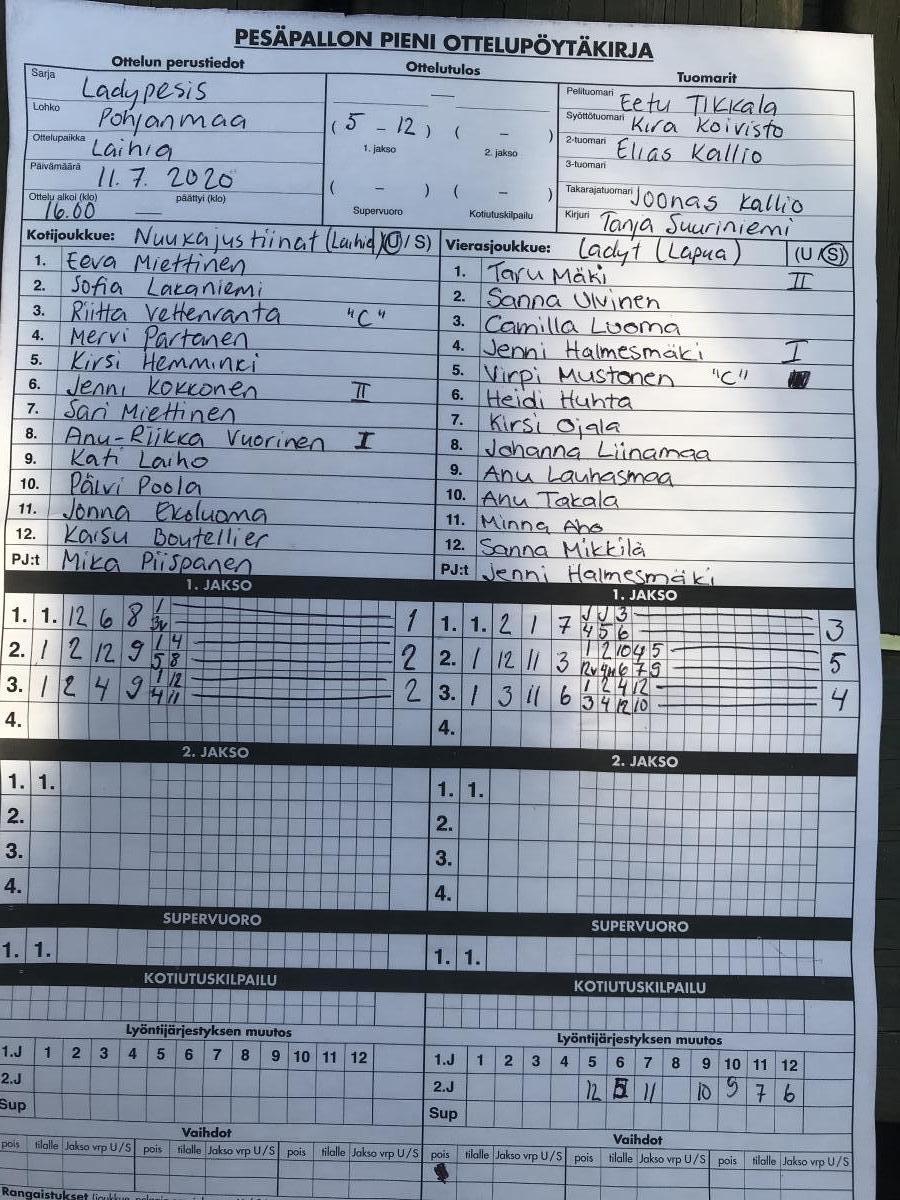 PESÄPALLON PIENI OTTELUPÖYTÄKIRJA
Ottelun perustiedot
Sarja Ladypesis
Lohko Pohjanmaa
Ottelupaikka Laihia
Päivämäärä 11.7.2020
Ottelu alkoi (klo) päättyi (klo)
16.00 —
Ottelutulos
—
( 5 – 12 ) ( – )
1. jakso 2. jakso
( – ) ( – )
Supervuoro Kotiutuskilpailu
Tuomarit
Pelituomari Eetu Tikkala
Syöttötuomari Kira Koivisto
2-tuomari Elias Kallio
3-tuomari
Takarajatuomari Joonas Kallio
Kirjuri Tanja Suuriniemi
Kotijoukkue: Nuukajustiinat (Laihia) (U / S)
1. Eeva Miettinen
2. Sofia Lakaniemi
3. Riitta Vettenranta "C"
4. Mervi Partanen
5. Kirsi Hemminki
6. Jenni Kokkonen II
7. Sari Miettinen
8. Anu-Riikka Vuorinen I
9. Kati Laiho
10. Päivi Poola
11. Jonna Ekoluoma
12. Kaisu Boutellier
PJ:t Mika Piispanen
Vierasjoukkue: Ladyt (Lapua) (U / S)
1. Taru Mäki II
2. Sanna Ulvinen
3. Camilla Luoma
4. Jenni Halmesmäki I
5. Virpi Mustonen "C"
6. Heidi Huhta
7. Kirsi Ojala
8. Johanna Liinamaa
9. Anu Lauhasmaa
10. Anu Takala
11. Minna Aho
12. Sanna Mikkilä
PJ:t Jenni Halmesmäki
1. JAKSO
1. 1. 12 6 8 1 3v 1
2. 1 2 12 9 1 4 5 8 2
3. 1 2 4 9 1 12 4 11 2
4.
2. JAKSO
1. 1.
2.
3.
4.
SUPERVUORO
1. 1.
KOTIUTUSKILPAILU
Lyöntijärjestyksen muutos
1.J 1 2 3 4 5 6 7 8 9 10 11 12
2.J
Sup
Vaihdot
pois tilalle Jakso vrp U/S pois tilalle Jakso vrp U/S pois tilalle Jakso vrp U/S
1. JAKSO
1. 1. 2 1 7 3 4 5 6 3
2. 1 12 11 3 1 2 10 4 5 6 7 9 5
3. 1 3 11 6 1 2 4 12 3 4 12 10 4
4.
2. JAKSO
1. 1.
2.
3.
4.
SUPERVUORO
1. 1.
KOTIUTUSKILPAILU
Lyöntijärjestyksen muutos
1.J 1 2 3 4 5 6 7 8 9 10 11 12
2.J 12 11 10 9 7 6
Sup
Vaihdot
pois tilalle Jakso vrp U/S pois tilalle Jakso vrp U/S pois tilalle Jakso vrp U/S
Rangaistukset